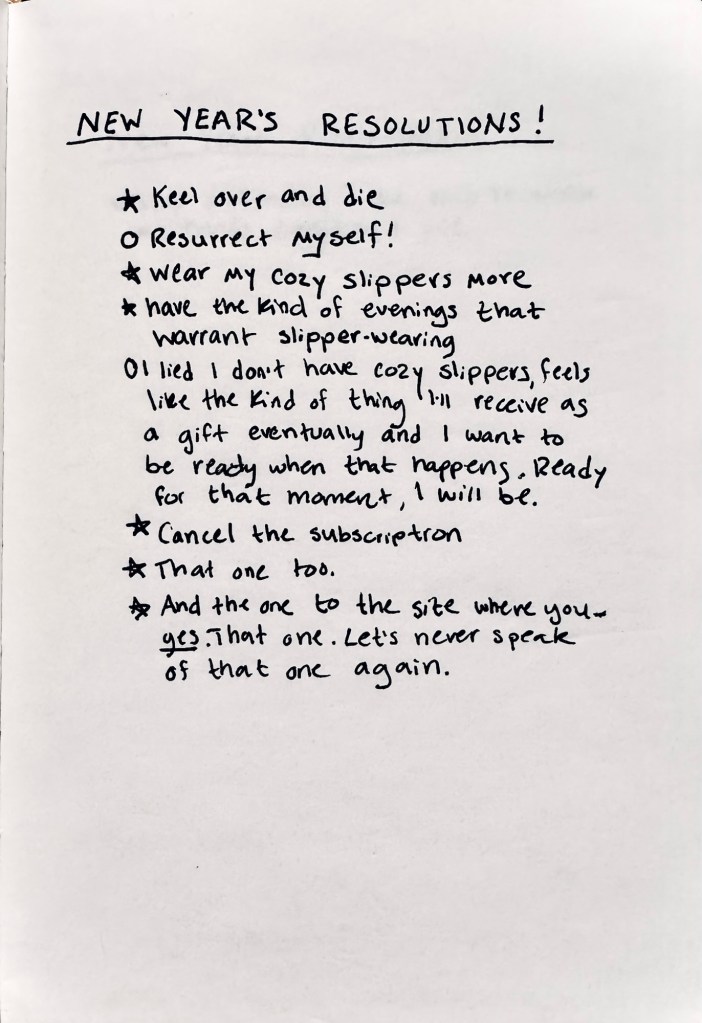 NEW YEAR'S RESOLUTIONS!
★ Keel over and die
O Resurrect Myself!
★ Wear My cozy slippers More
★ have the kind of evenings that
warrant slipper-wearing
O I lied I don't have cozy slippers, feels
like the kind of thing I'll receive as
a gift eventually and I want to
be ready when that happens. Ready
for that moment, I will be.
★ Cancel the subscription
★ That one too.
★ And the one to the site where you-
yes. That one. Let's never speak
of that one again.